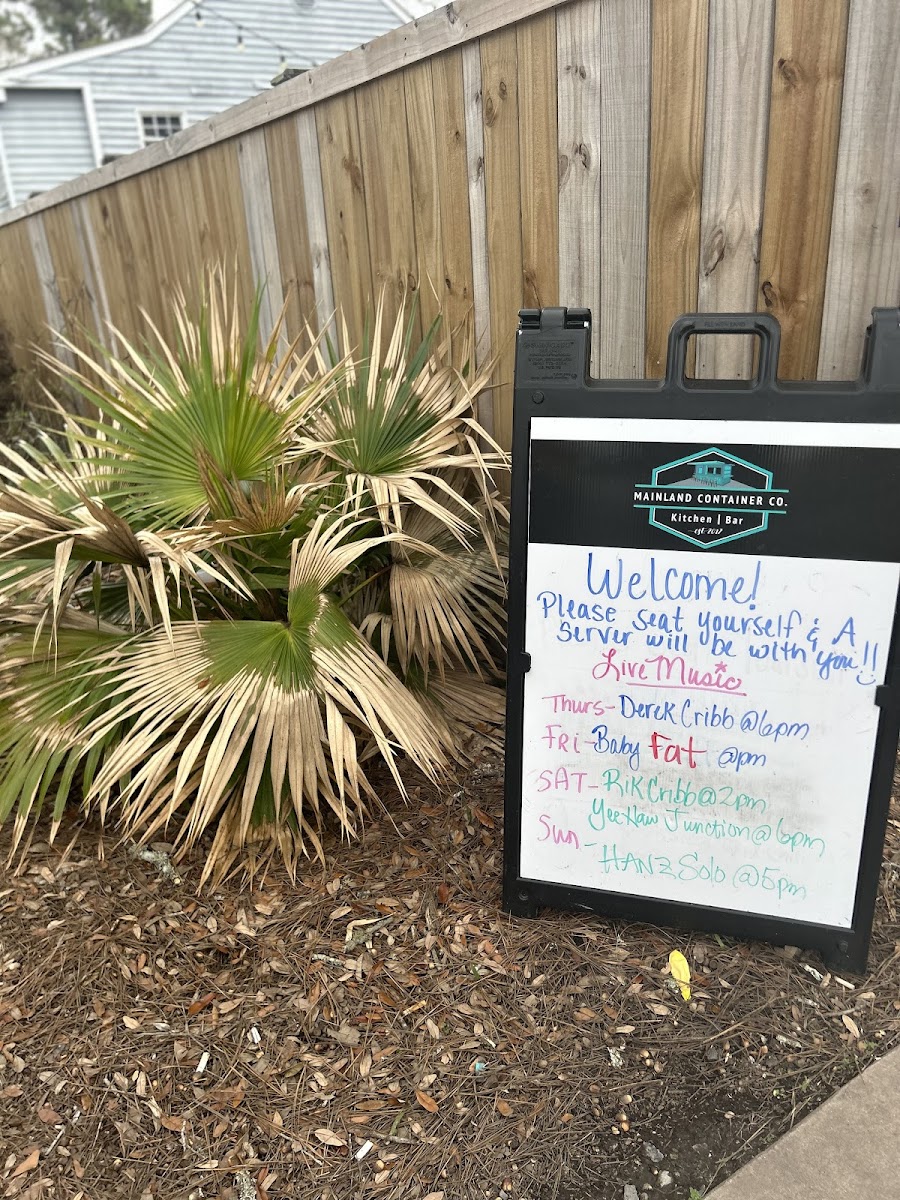 MAINLAND CONTAINER CO.
Kitchen | Bar
est. 2017
Welcome!
Please seat yourself & A
Server will be with you!!
Live Music
Thurs- Derek Cribb @6pm
FRI- Baby Fat @pm
SAT- RIK Cribb @2pm
YeeHaw Junction @6pm
Sun - HANZ Solo @5pm